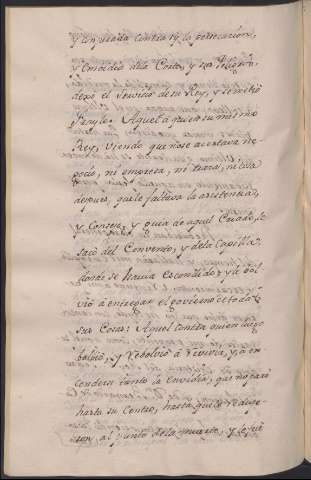 y empeñada contra ty la persecucion,
y emvidia de la Corte, y sus Peligros,
dexó el servicio de su Rey, y se metió
frayle. Aquel á quien su mismo
Rey, viendo que no se acertava ne-
gocio, ni empresa, ni havia, ni vida
despues, que le faltava la asistencia,
y Consejo, y guia de aquel Criado, le
sacó del Convento, y de la Capilla
donde se havia escondido; y le bol-
vió á entregar el govierno de todas
sus Cosas: Aquel contra quien luego
bolvió, y rebolvió á revivir, y á en-
cenderse tanto la Emvidia, que no paró
hasta su Centro, hasta que le reduge-
ron al punto de la muerte, y le qui